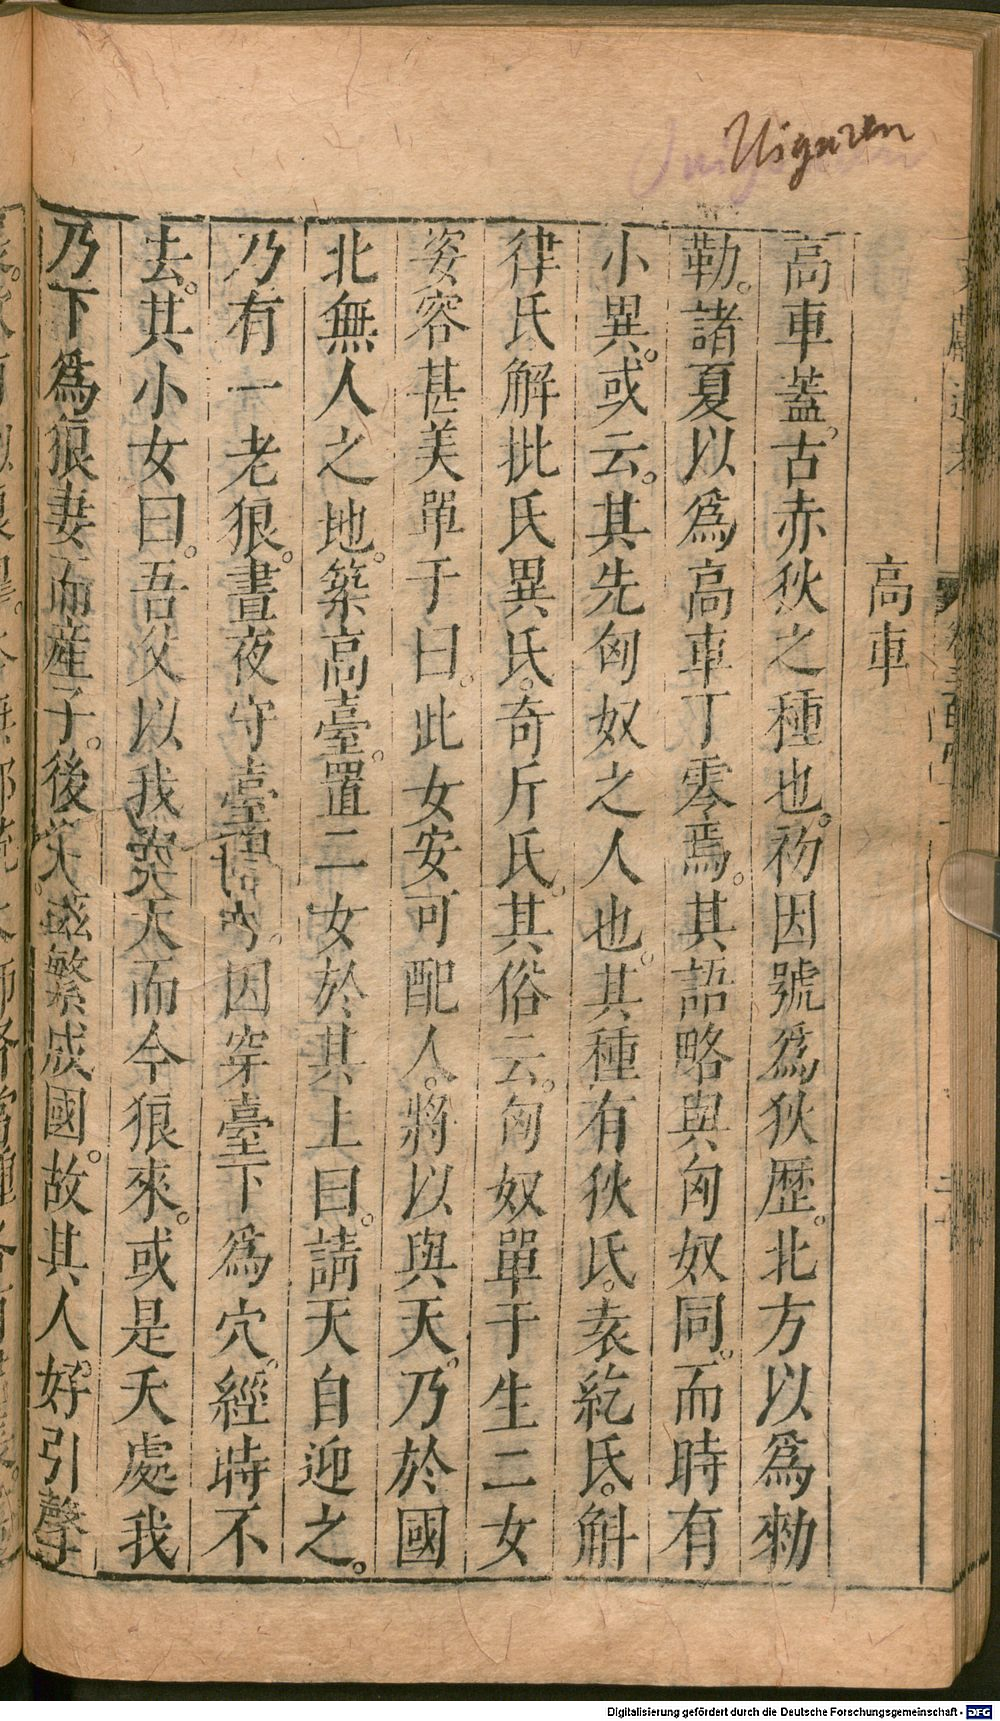 Uiguren
高車
高車蓋古赤狄之種也。初因號爲狄歷。北方以爲勑
勒。諸夏以爲高車丁零焉。其語略與匈奴同。而時有
小異。或云。其先匈奴之人也。其種有狄氏。袁紇氏。斛
律氏解批氏異氏。奇斤氏。其俗云。匈奴單于生二女
姿容甚美單于曰。此女安可配人。將以與天。乃於國
北無人之地。築高臺。置二女於其上曰。請天自迎之。
乃有一老狼。晝夜守臺因穿臺下爲穴。經時不
去。其小女曰。吾父以我與天而今狼來。或是天處我
乃下爲狼妻而産子。後遂滋繁成國。故其人好引聲
Digitalisierung gefördert durch die Deutsche Forschungsgemeinschaft - DFG